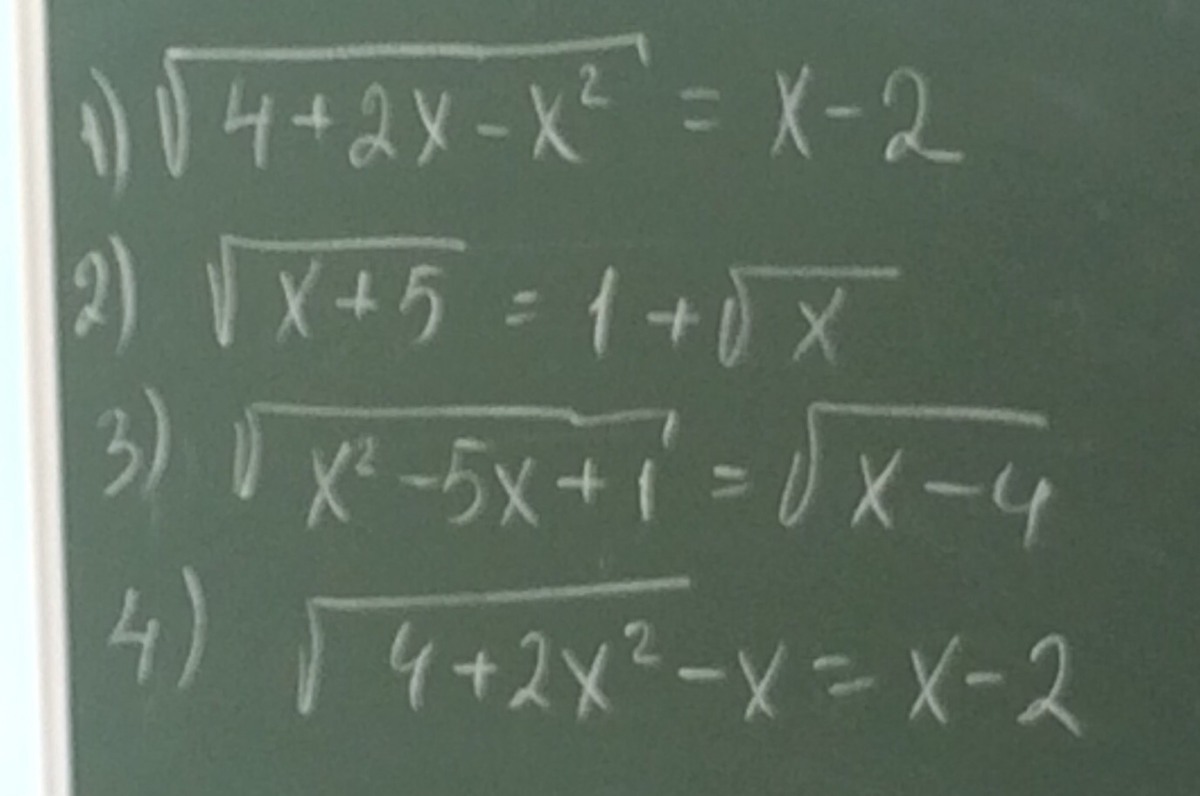 1) √(4+2x-x²) = x-2
2) √(x+5) = 1+√x
3) √(x²-5x+1) = √(x-4)
4) √(4+2x²)-x = x-2